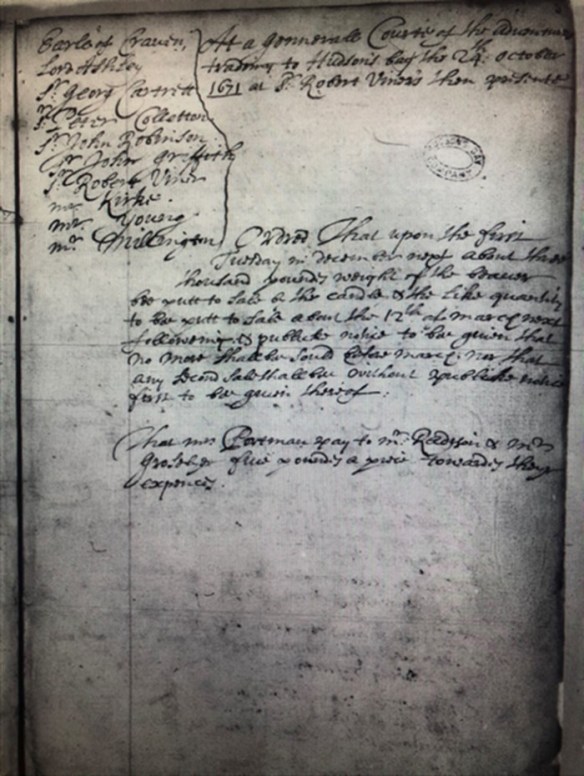 Earle of Craven,
Lord Ashley
Sr. Georg Cartrett
Sr. Peter Colleton
Sr. John Robinson
Sr. John Griffith
Sr. Robert Viner
mr. Kirke
mr. Young
mr. Millington
At a Gennerall Courte of the Adventurers
tradeing to Hudsons bay the 24th. october
1671 at Sr. Robert Viners then presente
Ordred That upon the first
Tuesday in december next about three
thousand poundes weight of the beaver
bee putt to sale by the candle & the like quantity
to be putt to sale about the 12th of march next
following & publicke notice to bee given that
no more shall bee sould before march nor that
any second sale shall bee without publicke notice
first to bee given thereof.
That mr. Portman pay to mr. Radison & mr.
Groseleyer five poundes a piece towardes their
expences.